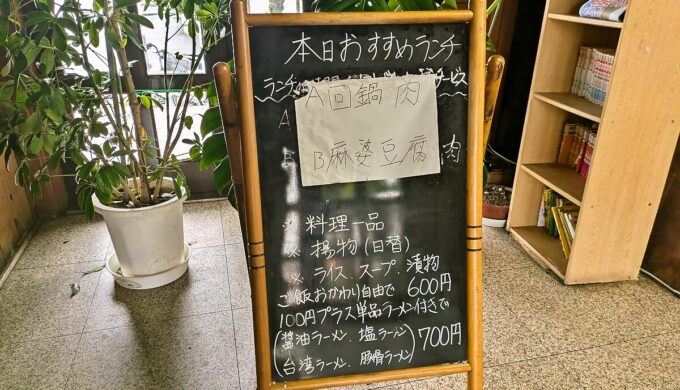 本日おすすめランチ
ランチ
サービス
A回鍋肉
A
B麻婆豆腐
肉
※ 料理一品
※ 揚物(日替)
※ ライス、スープ、漬物
ご飯おかわり自由で 600円
100円プラス単品ラーメン付きで
(醤油ラーメン、塩ラーメン
台湾ラーメン、豚骨ラーメン) 700円